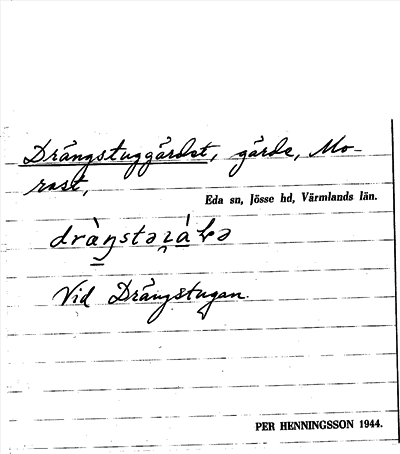 Drängstuggärdet, gärde, Mo-
rast,
Eda sn, Jösse hd, Värmlands län.
Vid Drängstugan.
PER HENNINGSSON 1944.